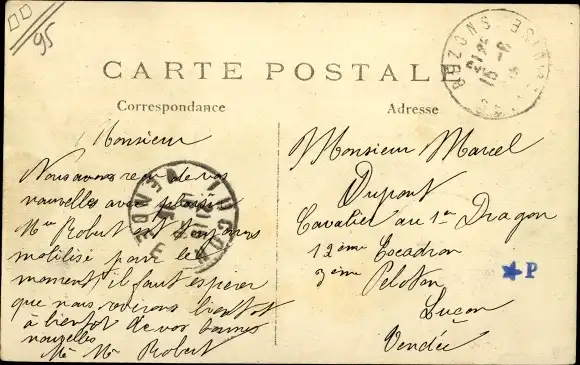 95
CARTE POSTALE
Correspondance
Adresse
Monsieur
Nous avons reçu de vos
nouvelles avec plaisir
Mr Robert est toujours
mobilisé pour le
moment, il faut espérer
que nous revirons bientot
à bientot de vos bonnes
nouvelles
Me Mr Robert
Monsieur Marcel
Dupont
Cavalier au 1er Dragon
12ème Escadron
3ème Peloton
Luçon
Vendée
P
LUÇON
VENDEE